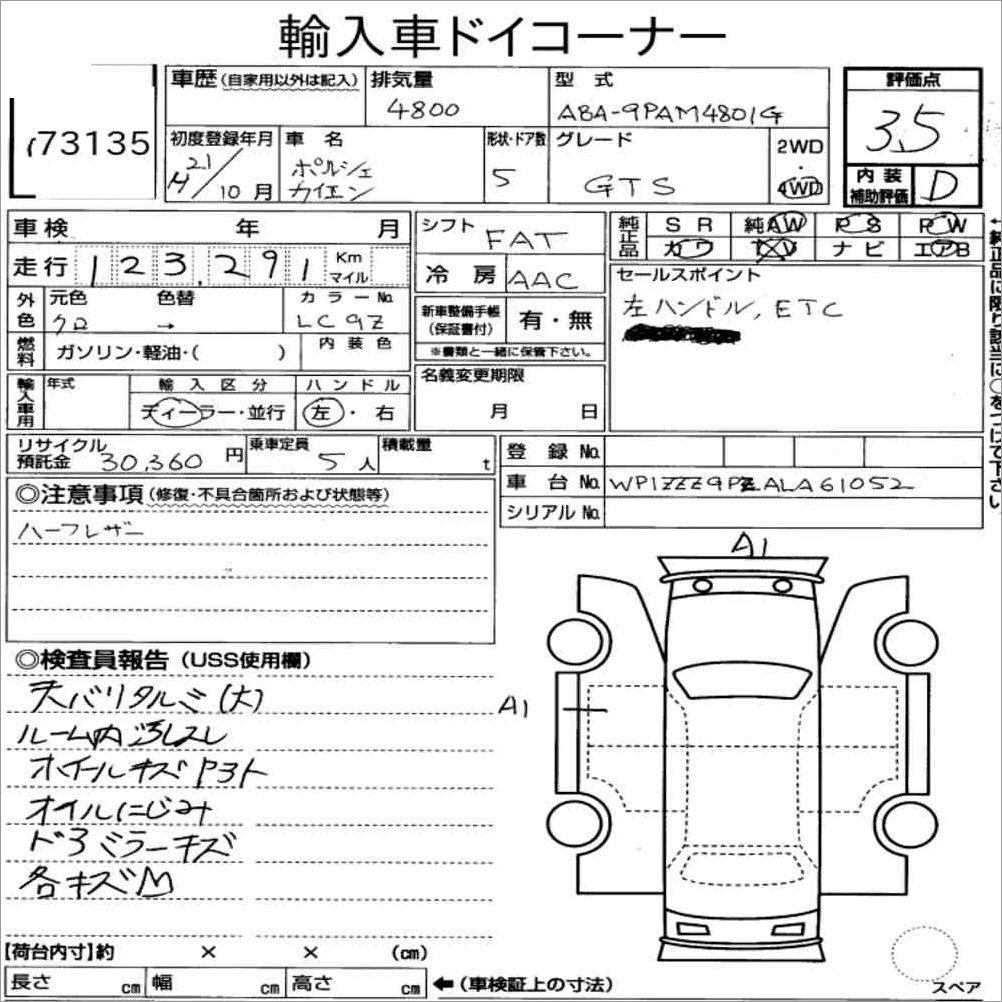 輸入車ドイコーナー
73135
車歴 (自家用以外は記入) 排気量 型式 評価点
4800 ABA-9PAM4801G 3.5
初度登録年月 車名 形状・ドア数 グレード 2WD・4WD 内装補助評価 D
H21/10月 ポルシェ カイエン 5 GTS
車検 年 月 シフト FAT 純正品 SR 純AW PS PW
カワ TV ナビ エアB
走行 123,291 Km マイル 冷房 AAC セールスポイント
左ハンドル, ETC
外色 元色 色替 カラーNo.
クロ → LC9Z
新車整備手帳(保証書付) 有・無
※書類と一緒に保管下さい。
燃料 ガソリン・軽油・( ) 内装色
輸入車用 年式 輸入区分 ハンドル
ディーラー・並行 左・右
名義変更期限
月 日
←純正品に限り該当に○をつけて下さい。
リサイクル預託金 30,360円 乗車定員 5人 積載量 t
登録No.
車台No. WP1ZZZ9PZALA61052
シリアルNo.
◎注意事項 (修復・不具合箇所および状態等)
ハーフレザー
A1
A1
◎検査員報告 (USS使用欄)
天バリタルミ(大)
ルーム内汚レスレ
ホイールキズ
オイルにじみ
ドアミラーキズ
各キズM
【荷台内寸】約 × × (cm)
長さ cm 幅 cm 高さ cm ←(車検証上の寸法)
スペア